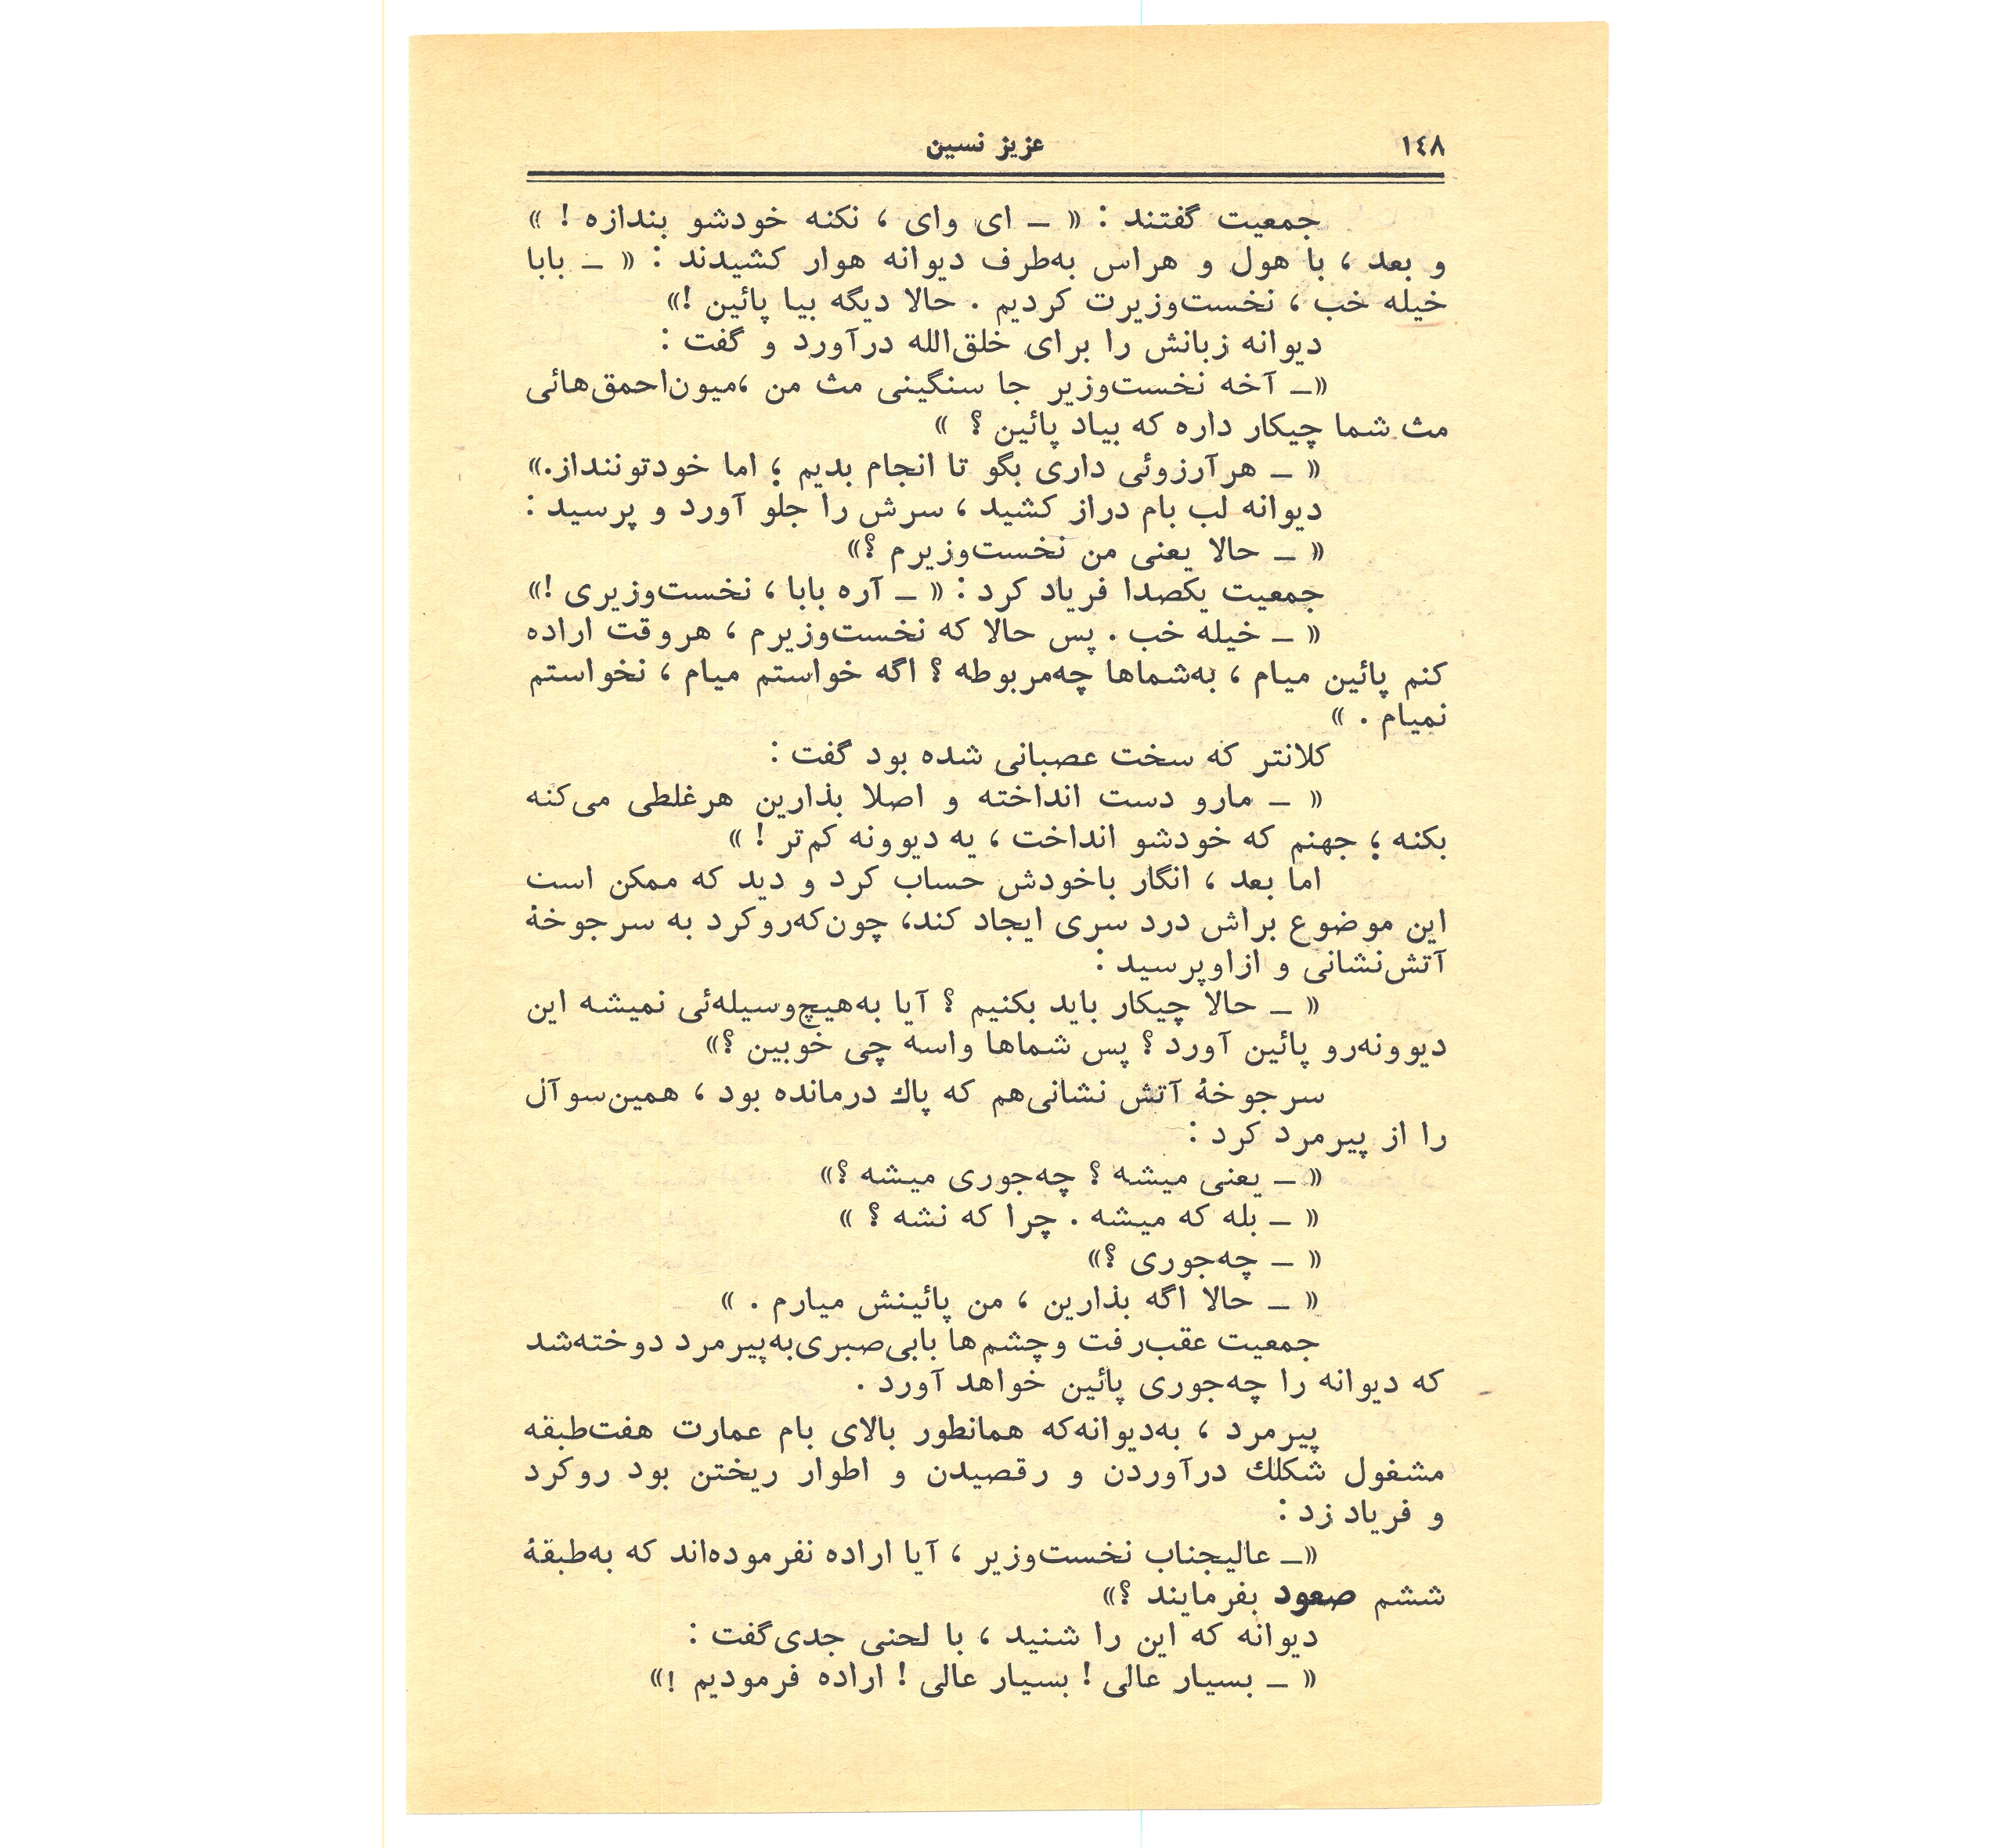 ۱٤۸ عزیز نسین
جمعیت گفتند : « ــ ای وای ، نکنه خودشو بندازه ! »
و بعد ، با هول و هراس به‌طرف دیوانه هوار کشیدند : « ــ بابا
خیله خب ، نخست‌وزیرت کردیم . حالا دیگه بیا پائین !»
دیوانه زبانش را برای خلق‌الله درآورد و گفت :
«ــ آخه نخست‌وزیر جا سنگینی مث من ،میون‌احمق‌هائی
مث شما چیکار داره که بیاد پائین ؟ »
« ــ هرآرزوئی داری بگو تا انجام بدیم ؛ اما خودتوننداز.»
دیوانه لب بام دراز کشید ، سرش را جلو آورد و پرسید :
« ــ حالا یعنی من نخست‌وزیرم ؟»
جمعیت یکصدا فریاد کرد : « ــ آره بابا ، نخست‌وزیری !»
« ــ خیله خب . پس حالا که نخست‌وزیرم ، هروقت اراده
کنم پائین میام ، به‌شماها چه‌مربوطه ؟ اگه خواستم میام ، نخواستم
نمیام . »
کلانتر که سخت عصبانی شده بود گفت :
« ــ مارو دست انداخته و اصلا بذارین هرغلطی می‌کنه
بکنه ؛ جهنم که خودشو انداخت ، یه دیوونه کم‌تر ! »
اما بعد ، انگار باخودش حساب کرد و دید که ممکن است
این موضوع براش درد سری ایجاد کند، چون‌که‌روکرد به سرجوخهٔ
آتش‌نشانی و ازاوپرسید :
« ــ حالا چیکار باید بکنیم ؟ آیا به‌هیچ‌وسیله‌ئی نمیشه این
دیوونه‌رو پائین آورد ؟ پس شماها واسه چی خوبین ؟»
سرجوخهٔ آتش نشانی‌هم که پاك درمانده بود ، همین‌سوآل
را از پیرمرد کرد :
« ــ یعنی میشه ؟ چه‌جوری میشه ؟»
« ــ بله که میشه . چرا که نشه ؟ »
« ــ چه‌جوری ؟»
« ــ حالا اگه بذارین ، من پائینش میارم . »
جمعیت عقب‌رفت وچشم‌ها بابی‌صبری‌به‌پیرمرد دوخته‌شد
که دیوانه را چه‌جوری پائین خواهد آورد .
پیرمرد ، به‌دیوانه‌که همانطور بالای بام عمارت هفت‌طبقه
مشغول شکلك درآوردن و رقصیدن و اطوار ریختن بود روکرد
و فریاد زد :
«ــ عالیجناب نخست‌وزیر ، آیا اراده نفرموده‌اند که به‌طبقهٔ
ششم صعود بفرمایند ؟»
دیوانه که این را شنید ، با لحنی جدی‌گفت :
« ــ بسیار عالی ! بسیار عالی ! اراده فرمودیم !»